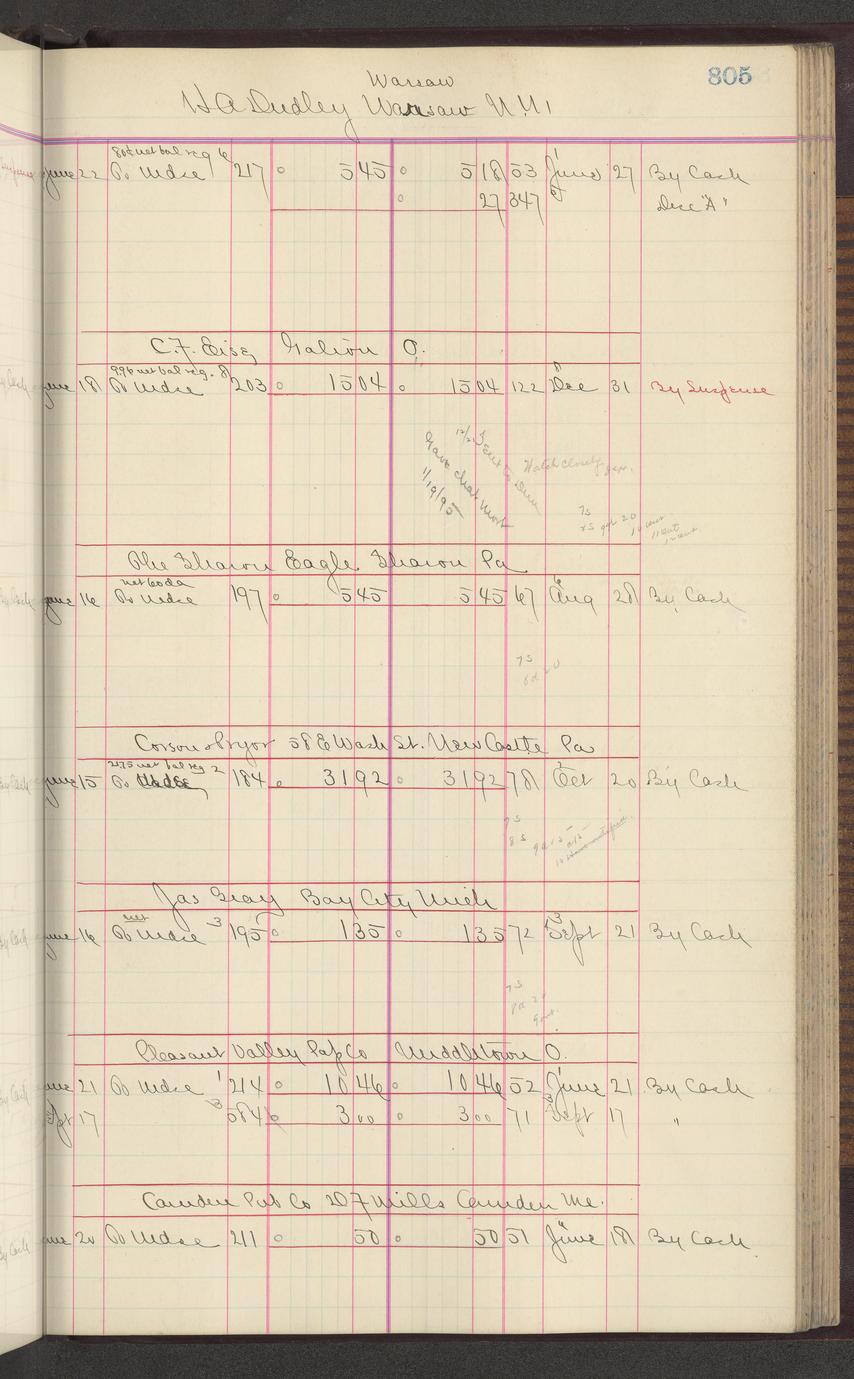 805
Warsaw
H A Dudley Warsaw N.Y.
80¢ net bal reg 6
June 22 To Mdse 217 545 518 53 June 27 By Cash
27 347 Disc "A"
C. F. Eise Galion O.
996 net bal reg. 8
June 18 To Mdse 203 1504 1504 122 Dec 31 By Suspense
12/21 Sent to Dun
Gave Chat Mort
1/19/95
Watch closely
The Sharon Eagle. Sharon Pa
net 60 da
June 16 To Mdse 197 545 545 67 Aug 28 By Cash
7 5
Corson & Pryor 58 E Wash St. New Castle Pa
2175 net bal reg 2
June 15 To Mdse 184 3192 3192 78 Oct 20 By Cash
7 5
8 5
Jas Gray Bay City Mich
net
June 16 To Mdse 3 195 135 135 72 Sept 21 By Cash
7 5
Pleasant Valley Pap Co Middletown O.
June 21 To Mdse 1 214 1046 1046 52 June 21 By Cash
Sept 17 3 584 300 300 71 Sept 17 "
Camden Pub Co 207 Mills Camden Me.
June 20 To Mdse 211 50 50 51 June 18 By Cash